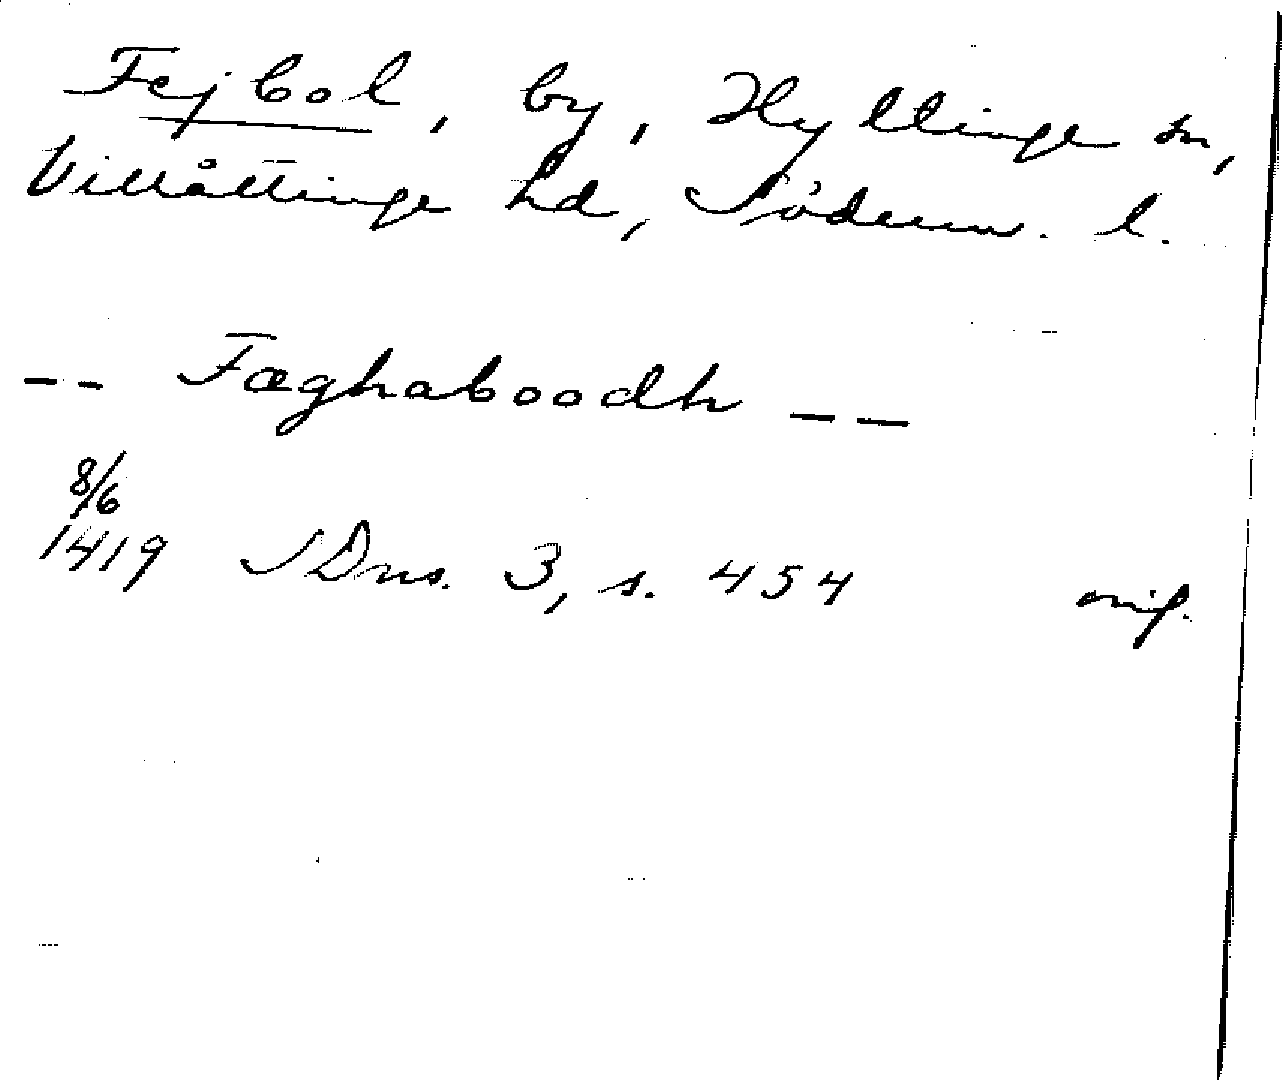 Fejbol, by, Hyltinge sn,
Villåttinge hd, Söderm. l.
-- Fæghaboodh --
8/6
1419 SDns. 3, s. 454